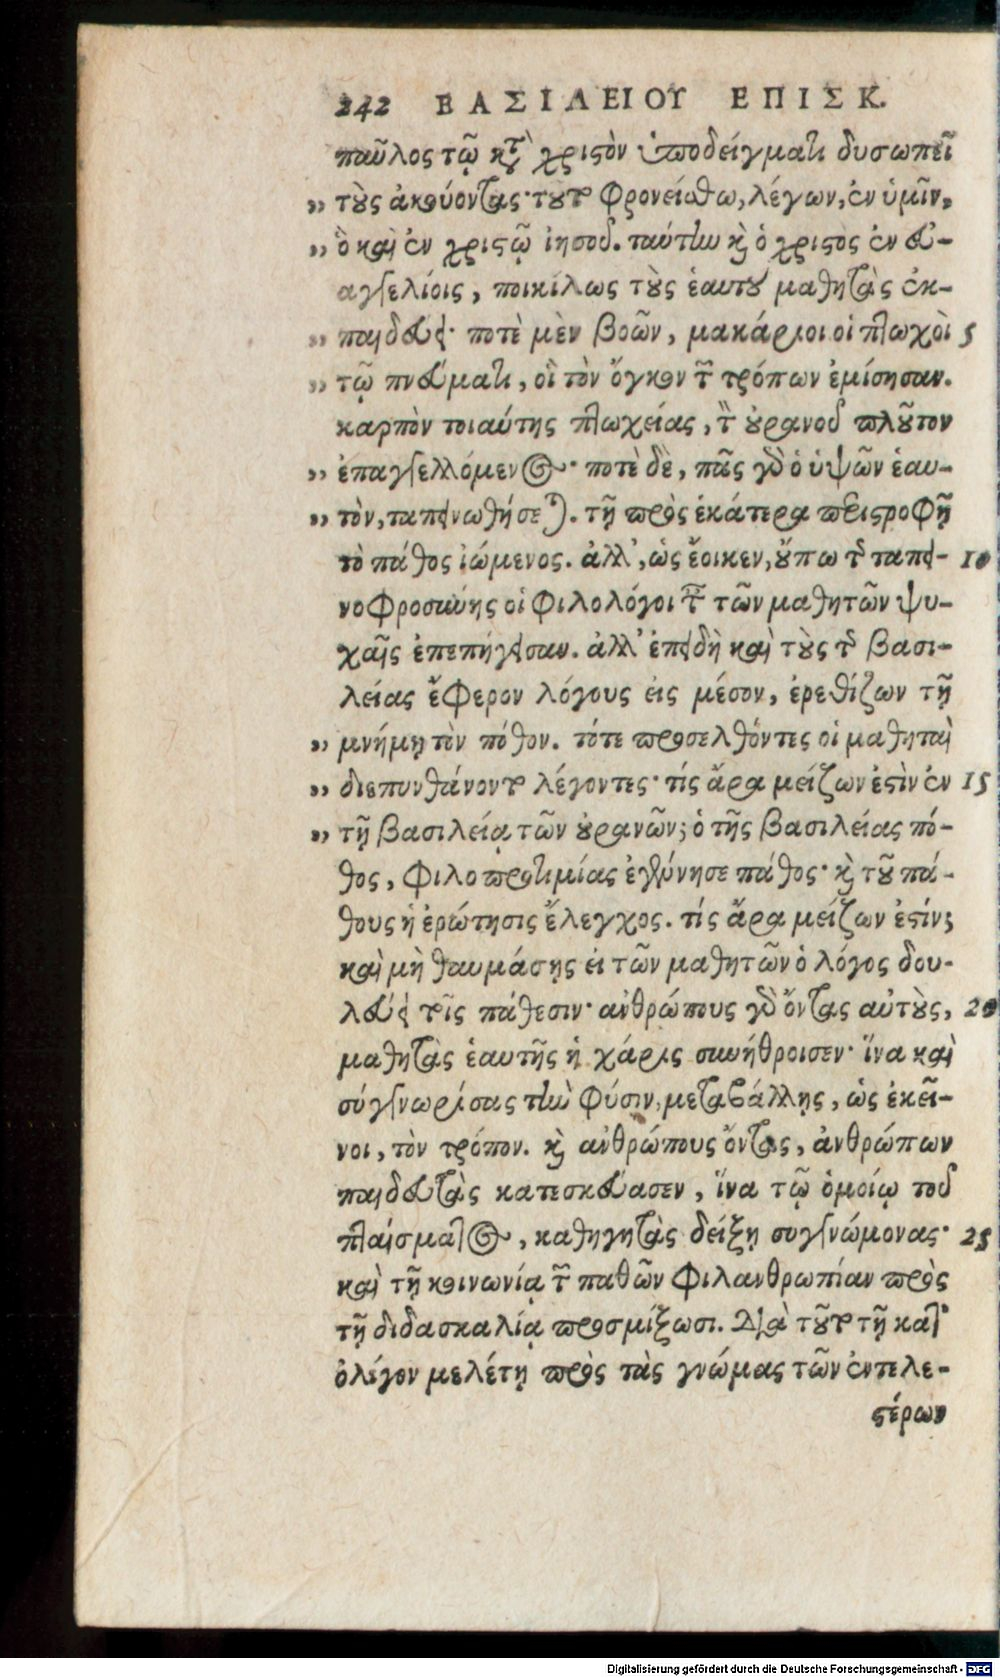 242 ΒΑΣΙΛΕΙΟΥ ΕΠΙΣΚ.
παῦλος τῷ κτ̀ χριστὸν ὑποδείγματι δυσωπεῖ
„ τοὺς ἀκούοντας· τοῦτο φρονείσθω, λέγων, ἐν ὑμῖν,
„ ὃ καὶ ἐν χριστῷ ἰησοῦ. ταύτην κὶ ὁ χριστὸς ἐν εὐ-
αγγελίοις, ποικίλως τοὺς ἑαυτοῦ μαθητὰς ἐκ-
„ παιδεύει· ποτὲ μὲν βοῶν, μακάριοι οἱ πτωχοὶ 5
„ τῷ πνεύματι, οἳ τὸν ὄγκον τ͂ τρόπων ἐμίσησαν.
καρπὸν τοιαύτης πτωχείας, τ͂ οὐρανοῦ πλοῦτον
„ ἐπαγγελλόμενος· ποτὲ δὲ, πᾶς γὸ ὁ ὑψῶν ἑαυ-
„ τὸν, ταπεινωθήσεται. τῇ πρὸς ἑκάτερα περιστροφῇ
τὸ πάθος ἰώμενος. ἀλλ', ὡς ἔοικεν, οὔπω τ͂ ταπει- 10
νοφροσύνης οἱ φιλολόγοι τ͂ τῶν μαθητῶν ψυ-
χαῖς ἐπεπήγεισαν. ἀλλ' ἐπειδὴ καὶ τοὺς τ͂ βασι-
λείας ἔφερον λόγους εἰς μέσον, ἐρεθίζων τῇ
„ μνήμῃ τὸν πόθον. τότε προσελθόντες οἱ μαθηταὶ
„ διεπυνθάνοντο λέγοντες· τίς ἄρα μείζων ἐστὶν ἐν 15
„ τῇ βασιλείᾳ τῶν οὐρανῶν; ὁ τῆς βασιλείας πό-
θος, φιλοπροτιμίας ἐγέννησε πάθος· κὶ τοῦ πά-
θους ἡ ἐρώτησις ἔλεγχος. τίς ἄρα μείζων ἐστίν;
καὶ μὴ θαυμάσῃς εἰ τῶν μαθητῶν ὁ λόγος δου-
λεύει τοῖς πάθεσιν· ἀνθρώπους γὸ ὄντας αὐτοὺς, 20
μαθητὰς ἑαυτῆς ἡ χάρις συνήθροισεν· ἵνα καὶ
συγγνωρίσας τὴν φύσιν, μεταβάλλῃς, ὡς ἐκεῖ-
νοι, τὸν τρόπον. κὶ ἀνθρώπους ὄντας, ἀνθρώπων
παιδευτὰς κατεσκεύασεν, ἵνα τῷ ὁμοίῳ τοῦ
πλαίσματος, καθηγητὰς δείξῃ συγγνώμονας· 25
καὶ τῇ κοινωνίᾳ τ͂ παθῶν φιλανθρωπίαν πρὸς
τῇ διδασκαλίᾳ προσμίξωσι. Διὰ τοῦτο τῇ κατ'
ὀλίγον μελέτῃ πρὸς τὰς γνώμας τῶν ἐντελε-
στέρων
Digitalisierung gefördert durch die Deutsche Forschungsgemeinschaft - DFG